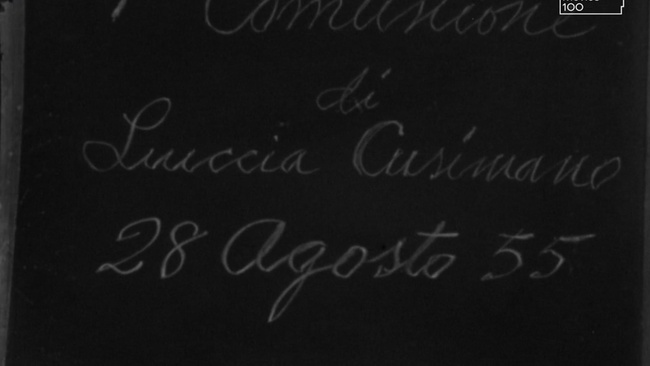 Comunione
di
Luuccia Cusimano
28 Agosto 55
100